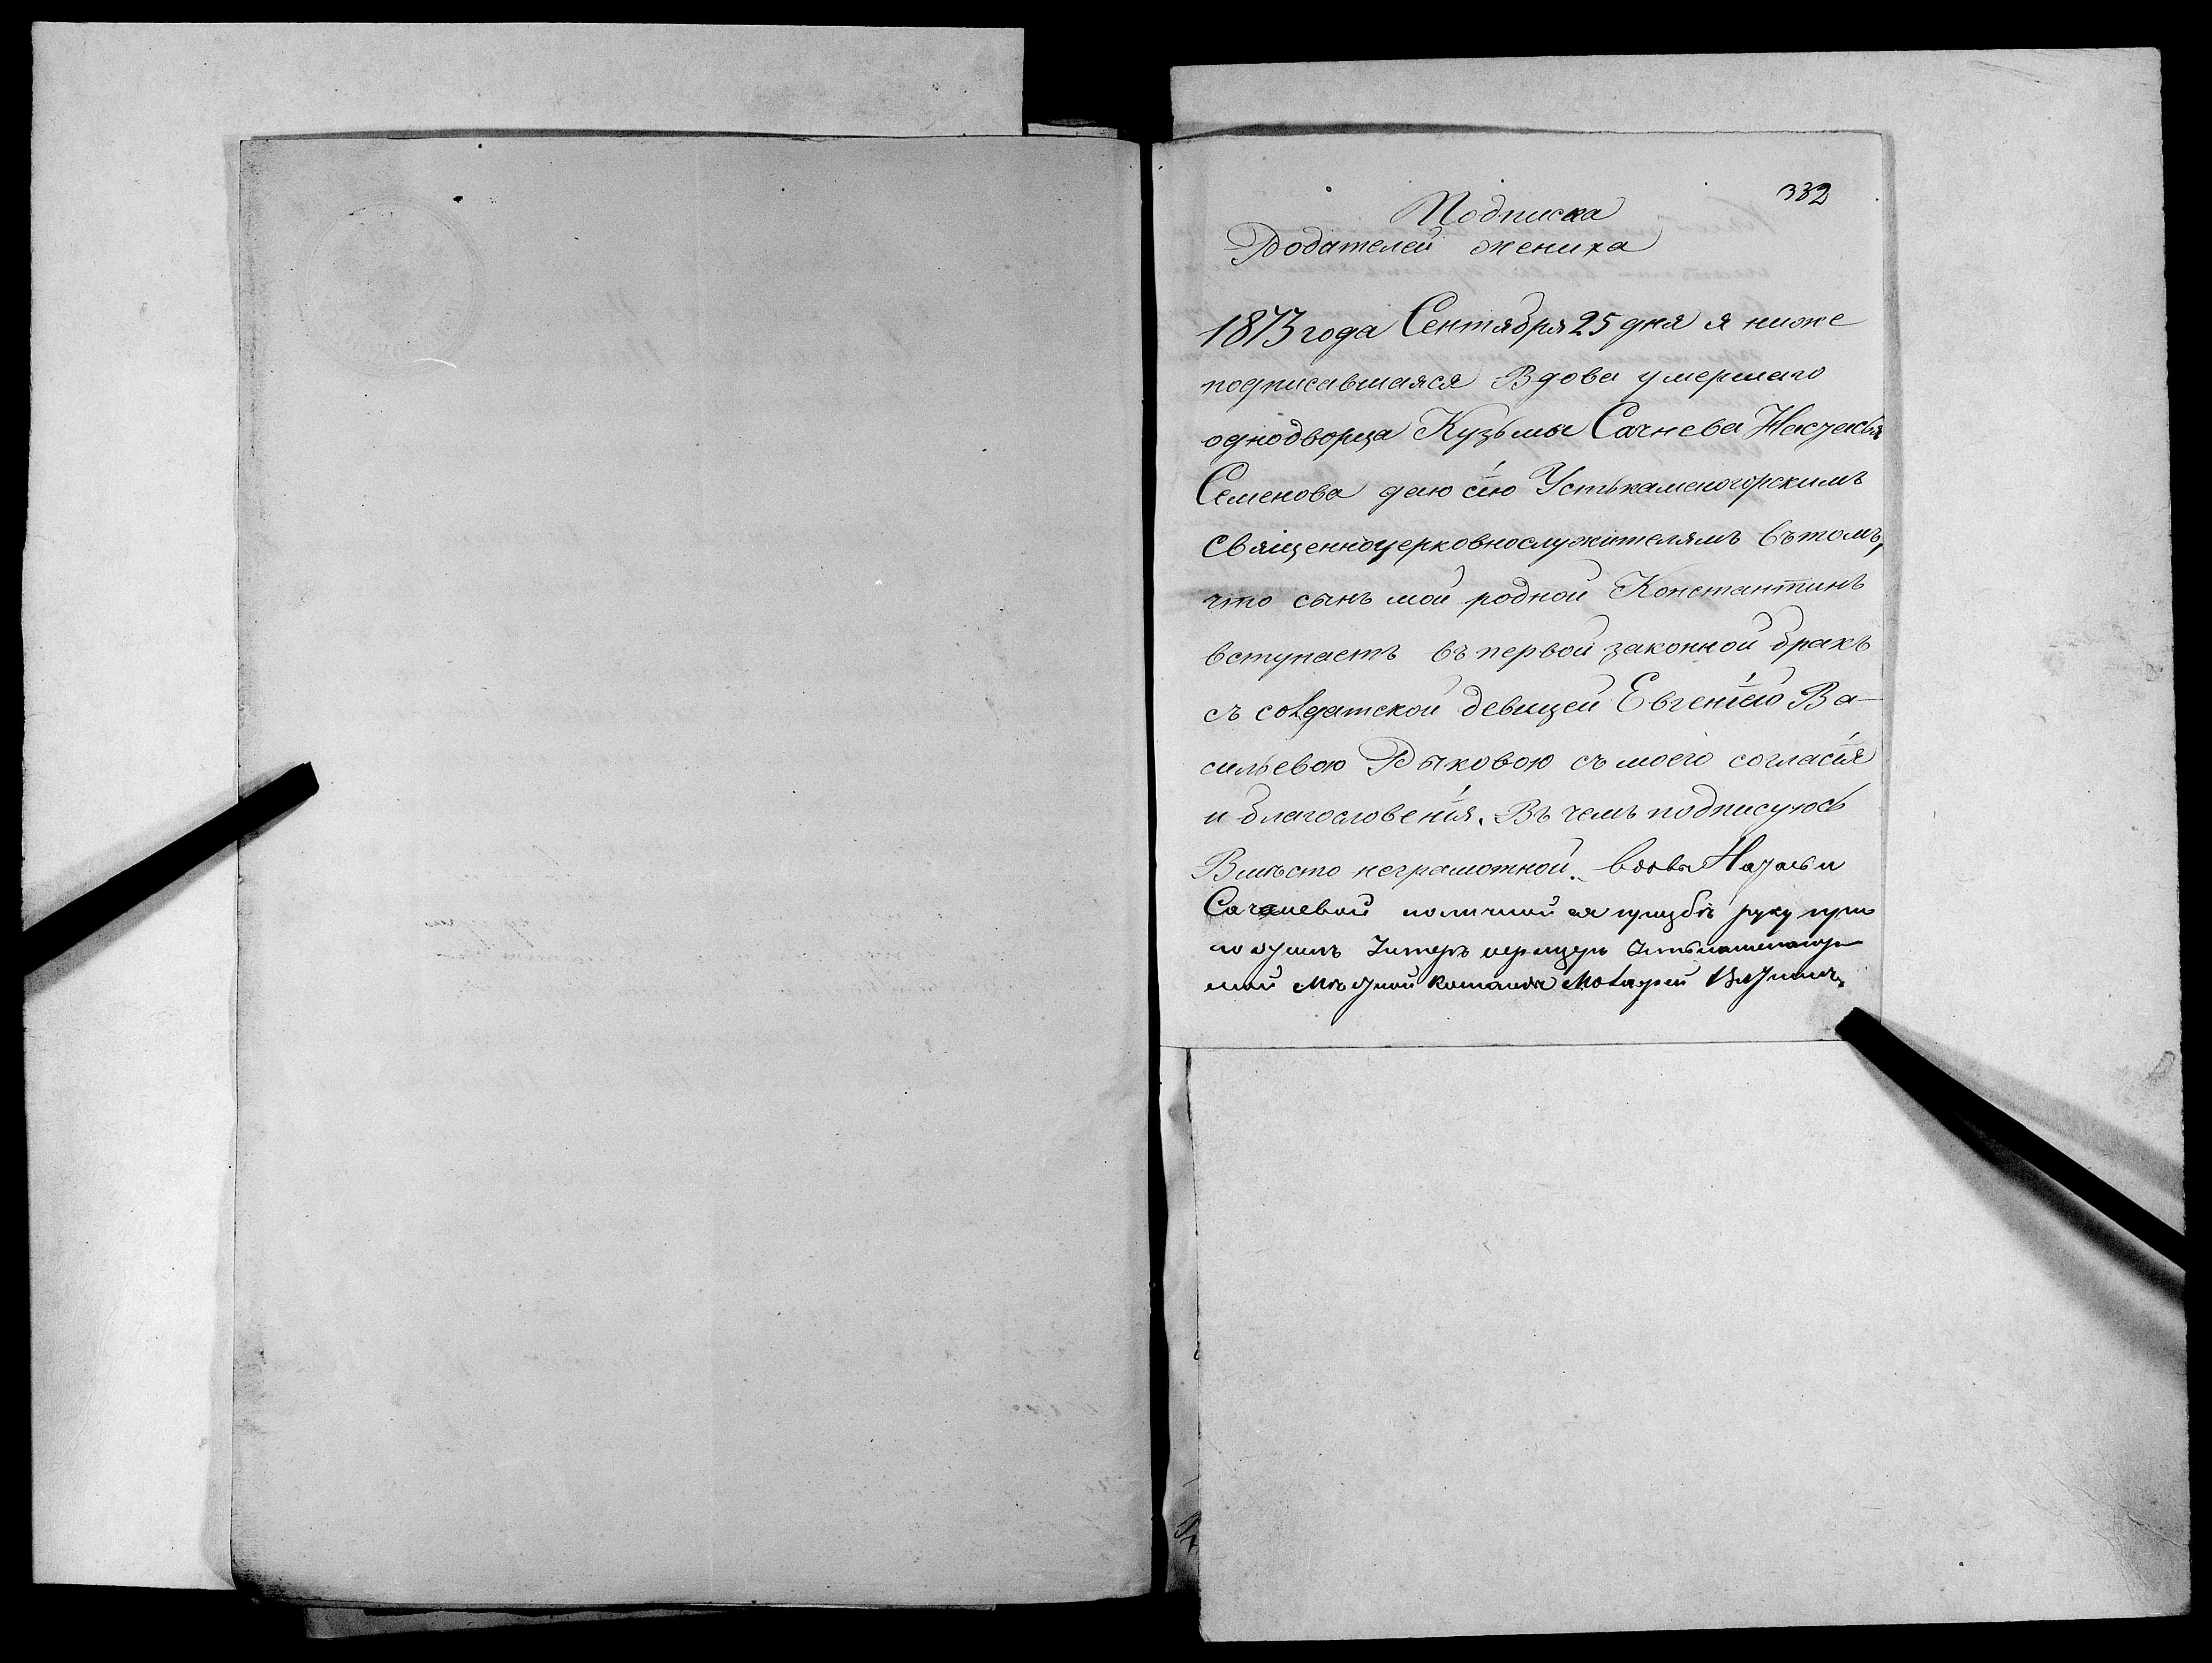 332
Подписка
Родителей жениха
1873 года Сентября 25 дня я ниже
подписавшаяся Вдова умершаго
однодворца Кузьмы Сачнева Настасья
Семенова даю сію Устькаменогорскимъ
Священноцерковнослужителямъ въ томъ,
что сынъ мой родной Константинъ
вступаетъ въ первой законной бракъ
съ солдатской девицей Евгеніею Ва-
сильевою Рыковою съ моего согласія
и благословенія. Въ чемъ подписуюсь
Вместо неграмотной вдовы
Сачневой по личной ея прозбѣ руку при
ложилъ Унтеръ офицеръ Устькаменогор
ской Местной команды